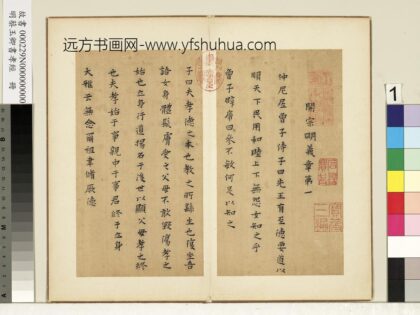 远方书画网-www.yfshuhua.com
故書000229N000000000
明蔡玉卿書孝經 冊
開宗明義章第一
仲尼居曾子侍子曰先王有至德要道以
順天下民用和睦上下無怨女知之乎
曾子避席曰參不敏何足以知之
子曰夫孝德之本也教之所繇生也復坐吾
語女身體髮膚受之父母不敢毀傷孝之
始也立身行道揚名于後世以顯父母孝之終
也夫孝始于事親中于事君終于立身
大雅云無念爾祖聿脩厥德
1